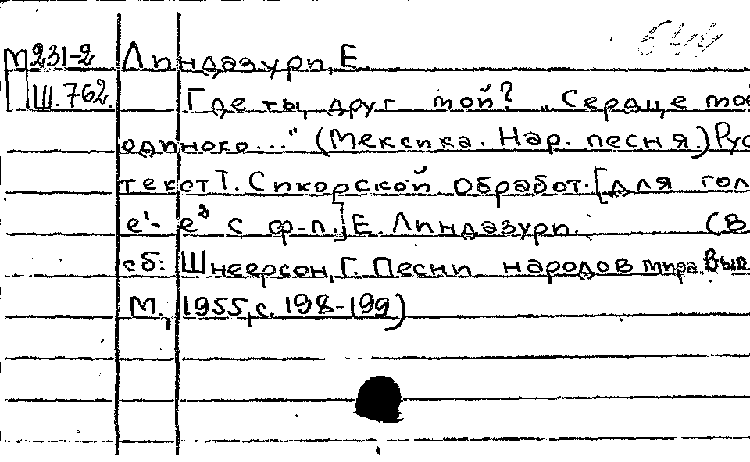 М231-2 Линдазури, Е.
Ш.762. Где ты, друг мой? „Сердце мо
одиноко..." (Мексика. Нар. песня.) Рус
текст Т. Сикорской Обработ. [для гол
е¹- е² с ф-п.] Е. Линдазури. (В
сб: Шнеерсон, Г. Песни народов мира. Вып
М., 1955, с. 198-199)